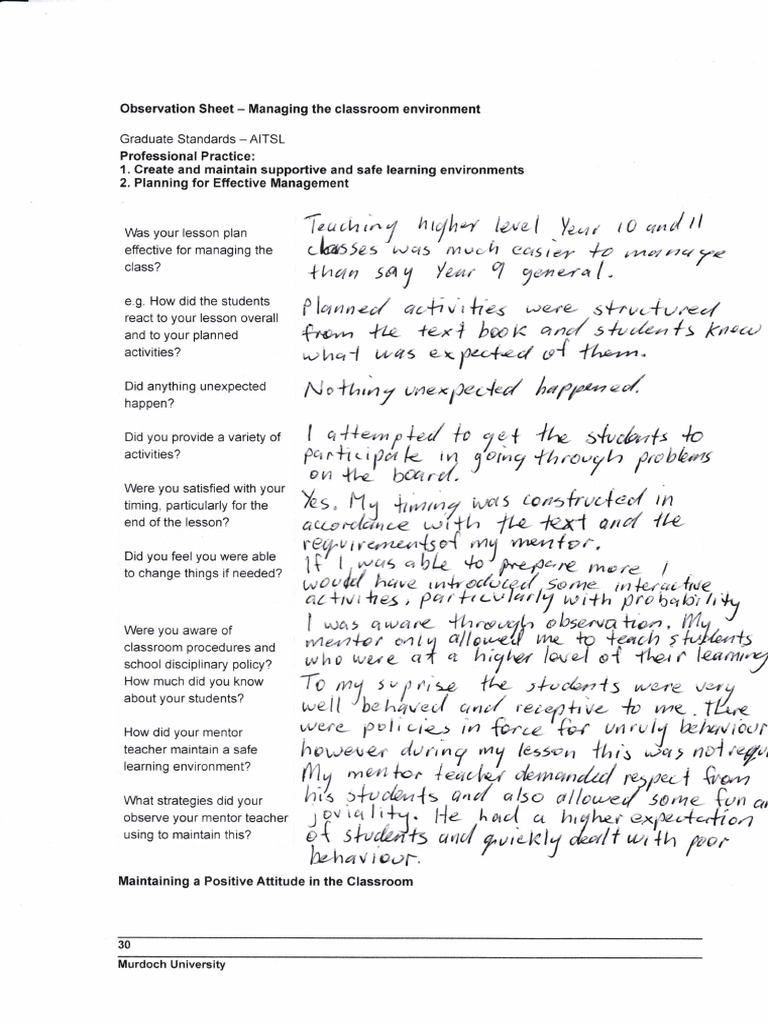 Observation Sheet – Managing the classroom environment
Graduate Standards – AITSL
Professional Practice:
1. Create and maintain supportive and safe learning environments
2. Planning for Effective Management
Was your lesson plan
effective for managing the
class?
Teaching higher level Year 10 and 11
classes was much easier to manage
than say Year 9 general.
e.g. How did the students
react to your lesson overall
and to your planned
activities?
Planned activities were structured
from the text book and students knew
what was expected of them.
Did anything unexpected
happen?
Nothing unexpected happened.
Did you provide a variety of
activities?
I attempted to get the students to
participate in going through problems
on the board.
Were you satisfied with your
timing, particularly for the
end of the lesson?
Yes. My timing was constructed in
accordance with the text and the
requirements of my mentor.
Did you feel you were able
to change things if needed?
If I was able to prepare more I
would have introduced some interactive
activities, particularly with probability
Were you aware of
classroom procedures and
school disciplinary policy?
How much did you know
about your students?
I was aware through observation. My
mentor only allowed me to teach students
who were at a higher level of their learning
To my suprise the students were very
well behaved and receptive to me. There
were policies in force for unruly behaviour
however during my lesson this was not requ
How did your mentor
teacher maintain a safe
learning environment?
What strategies did your
observe your mentor teacher
using to maintain this?
My mentor teacher demanded respect from
his students and also allowed some fun a
joviality. He had a higher expectation
of students and quickly dealt with poor
behaviour.
Maintaining a Positive Attitude in the Classroom
30
Murdoch University